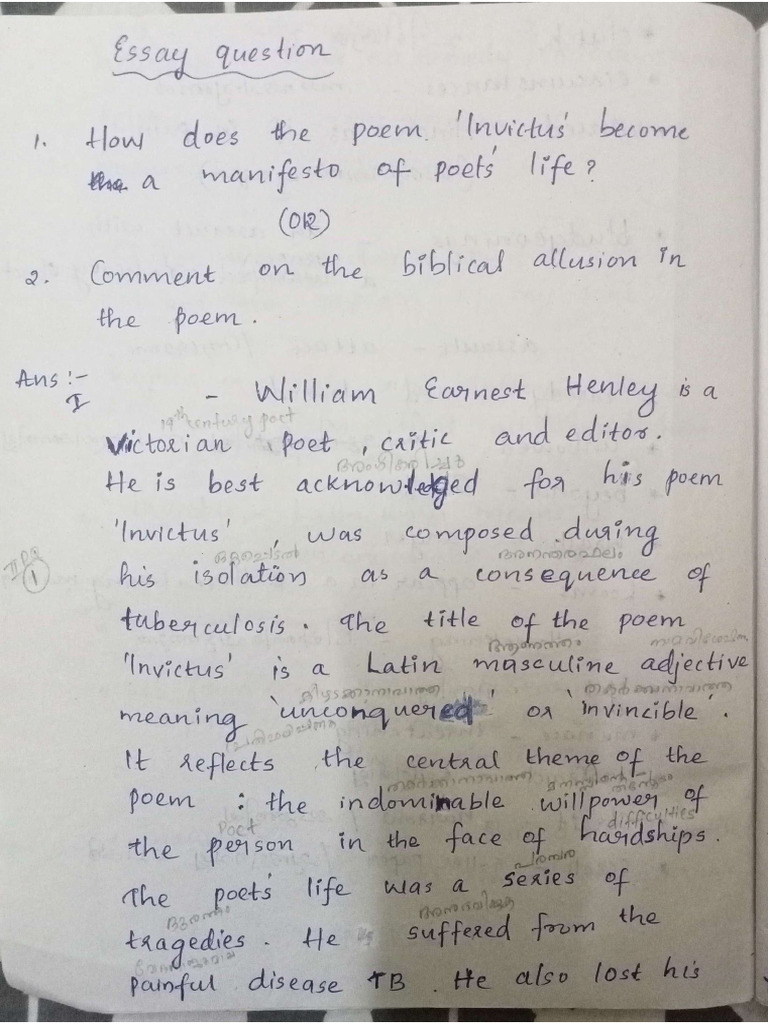 Essay question
1. How does the poem 'Invictus' become
a manifesto of poet's life?
(OR)
2. Comment on the biblical allusion in
the poem.
Ans :- I - William Earnest Henley is a
19th century poet
Victorian poet, critic and editor.
He is best acknowleged for his poem
'Invictus', was composed during
ഒറ്റപ്പെടൽ അനന്തരഫലം
1 his isolation as a consequence of
tuberculosis. The title of the poem
'Invictus' is a Latin masculine adjective
കീഴടക്കാനാവാത്ത തകർക്കാനാവാത്ത
meaning 'unconquered' or 'invincible'.
It reflects the central theme of the
poem : the indominable willpower of
Poet difficulties
the person in the face of hardships.
പരമ്പര
The poet's life was a series of
ദുരന്തം
tragedies. He suffered from the
painful disease TB. He also lost his